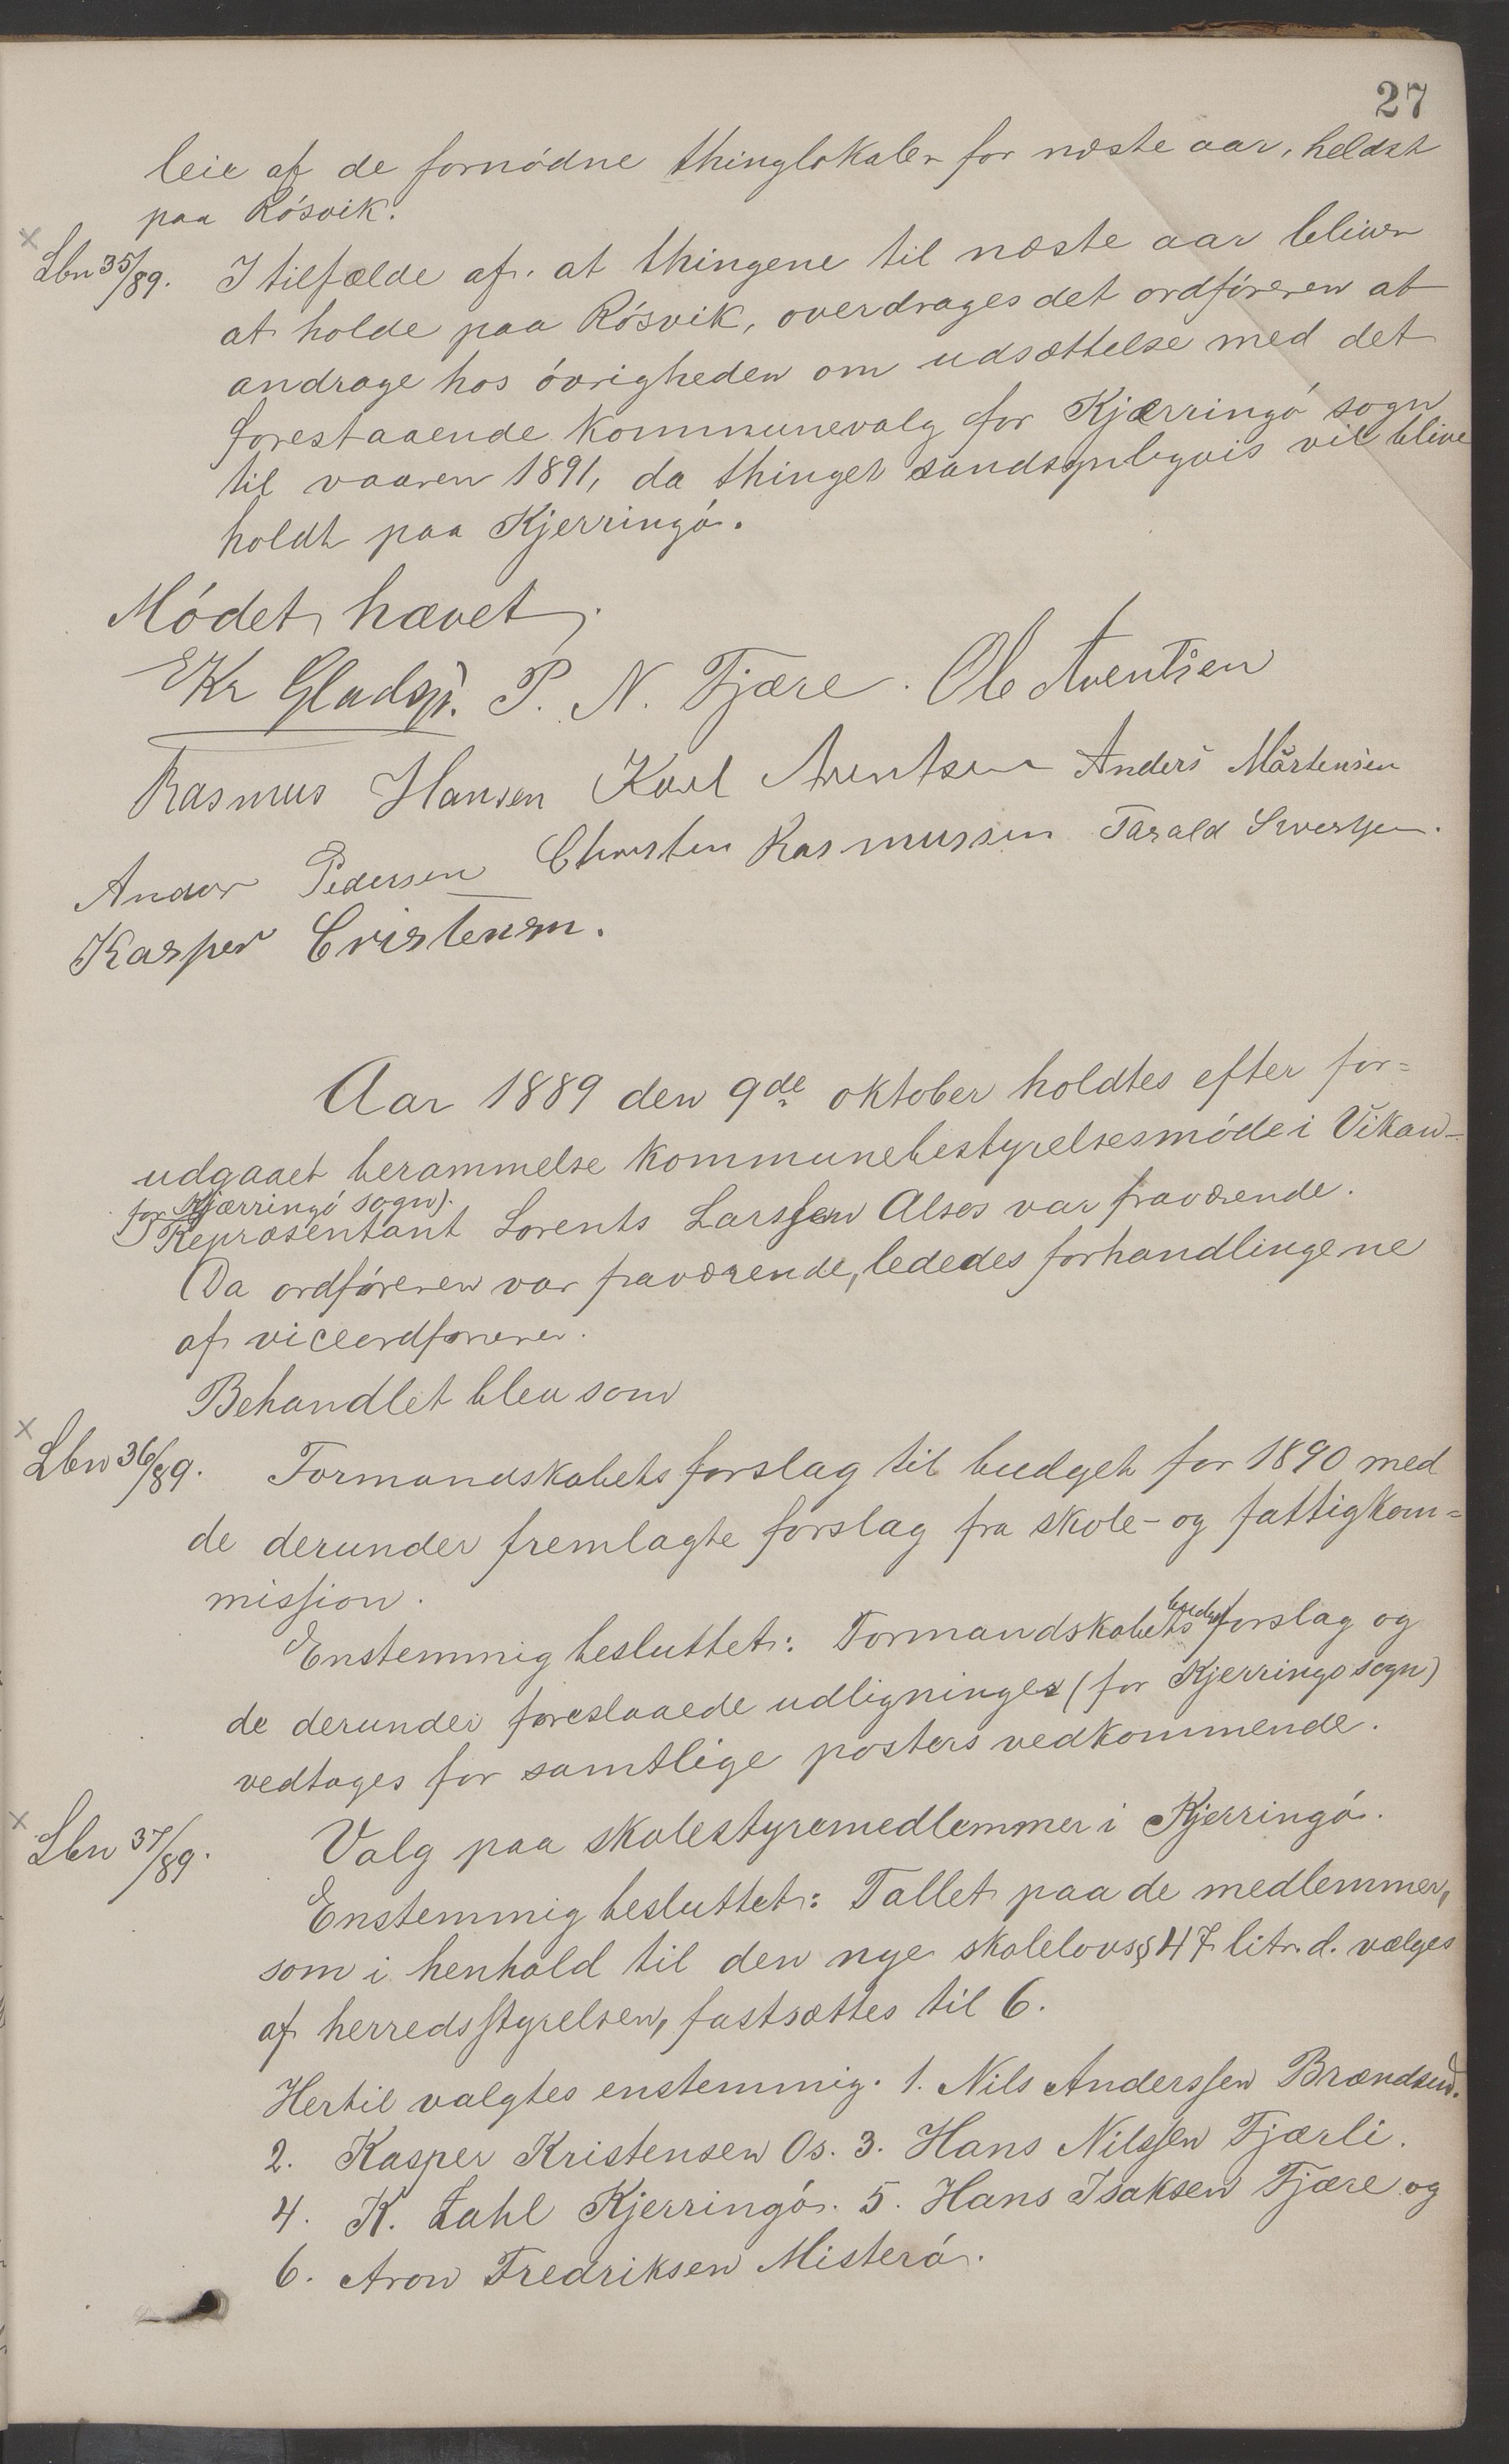 27
leie af de fornódne thinglokaler for næste aar, heldst
paa Rósvik.
Lbn 35/89. I tilfælde af. at thingene til næste aar bliver
at holde paa Rósvik, overdrages det ordføreren at
andrage hos óvrigheden om udsættelse med det
forestaaende kommunevalg for Kjærringó sogn
til vaaren 1891, da thinget sandsynligvis vil blive
holdt paa Kjerringó.
Módet hævet.
EKr P. N. Fjære. Ole Arentsen
Rasmus Hansen Karl Arentsen Anders Mårtensen
Andor Pedersen Christen Rasmussen Tarald Sivertsen.
Kasper Cristensen.
Aar 1889 den 9de oktober holdtes efter for=
udgaaet berammelse kommunebestyrelsesmóde i Vikan
for Kjærringó sogn).
Repræsentant Lorents Larssen Alsos var fraværende.
Da ordføreren var fraværende, lededes forhandlingene
af viceordføreren.
Behandlet blev som
Lbn 36/89. Formandskabets forslag til budget for 1890 med
de derunder fremlagte forslag fra skole- og fattigkom=
mission.
Enstemmig besluttet: Formandskabets budgetforslag og
de derunder foreslaaede udligninger (for Kjerringo sogn)
vedtages for samtlige posters vedkommende.
Lbn 37/89. Valg paa skolestyremedlemmer i Kjerringó.
Enstemmig besluttet: Tallet paa de medlemmer,
som i henhold til den nye skolelovs § 47 litr. d. vælges
af herredsstyrelsen, fastsættes til 6.
Hertil valgtes enstemmig. 1. Nils Anderssen Brændsund.
2. Kasper Kristensen Os. 3. Hans Nilssen Fjærli.
4. K. Zahl Kjerringó. 5. Hans Isaksen Fjære og
6. Aron Fredriksen Misteró.